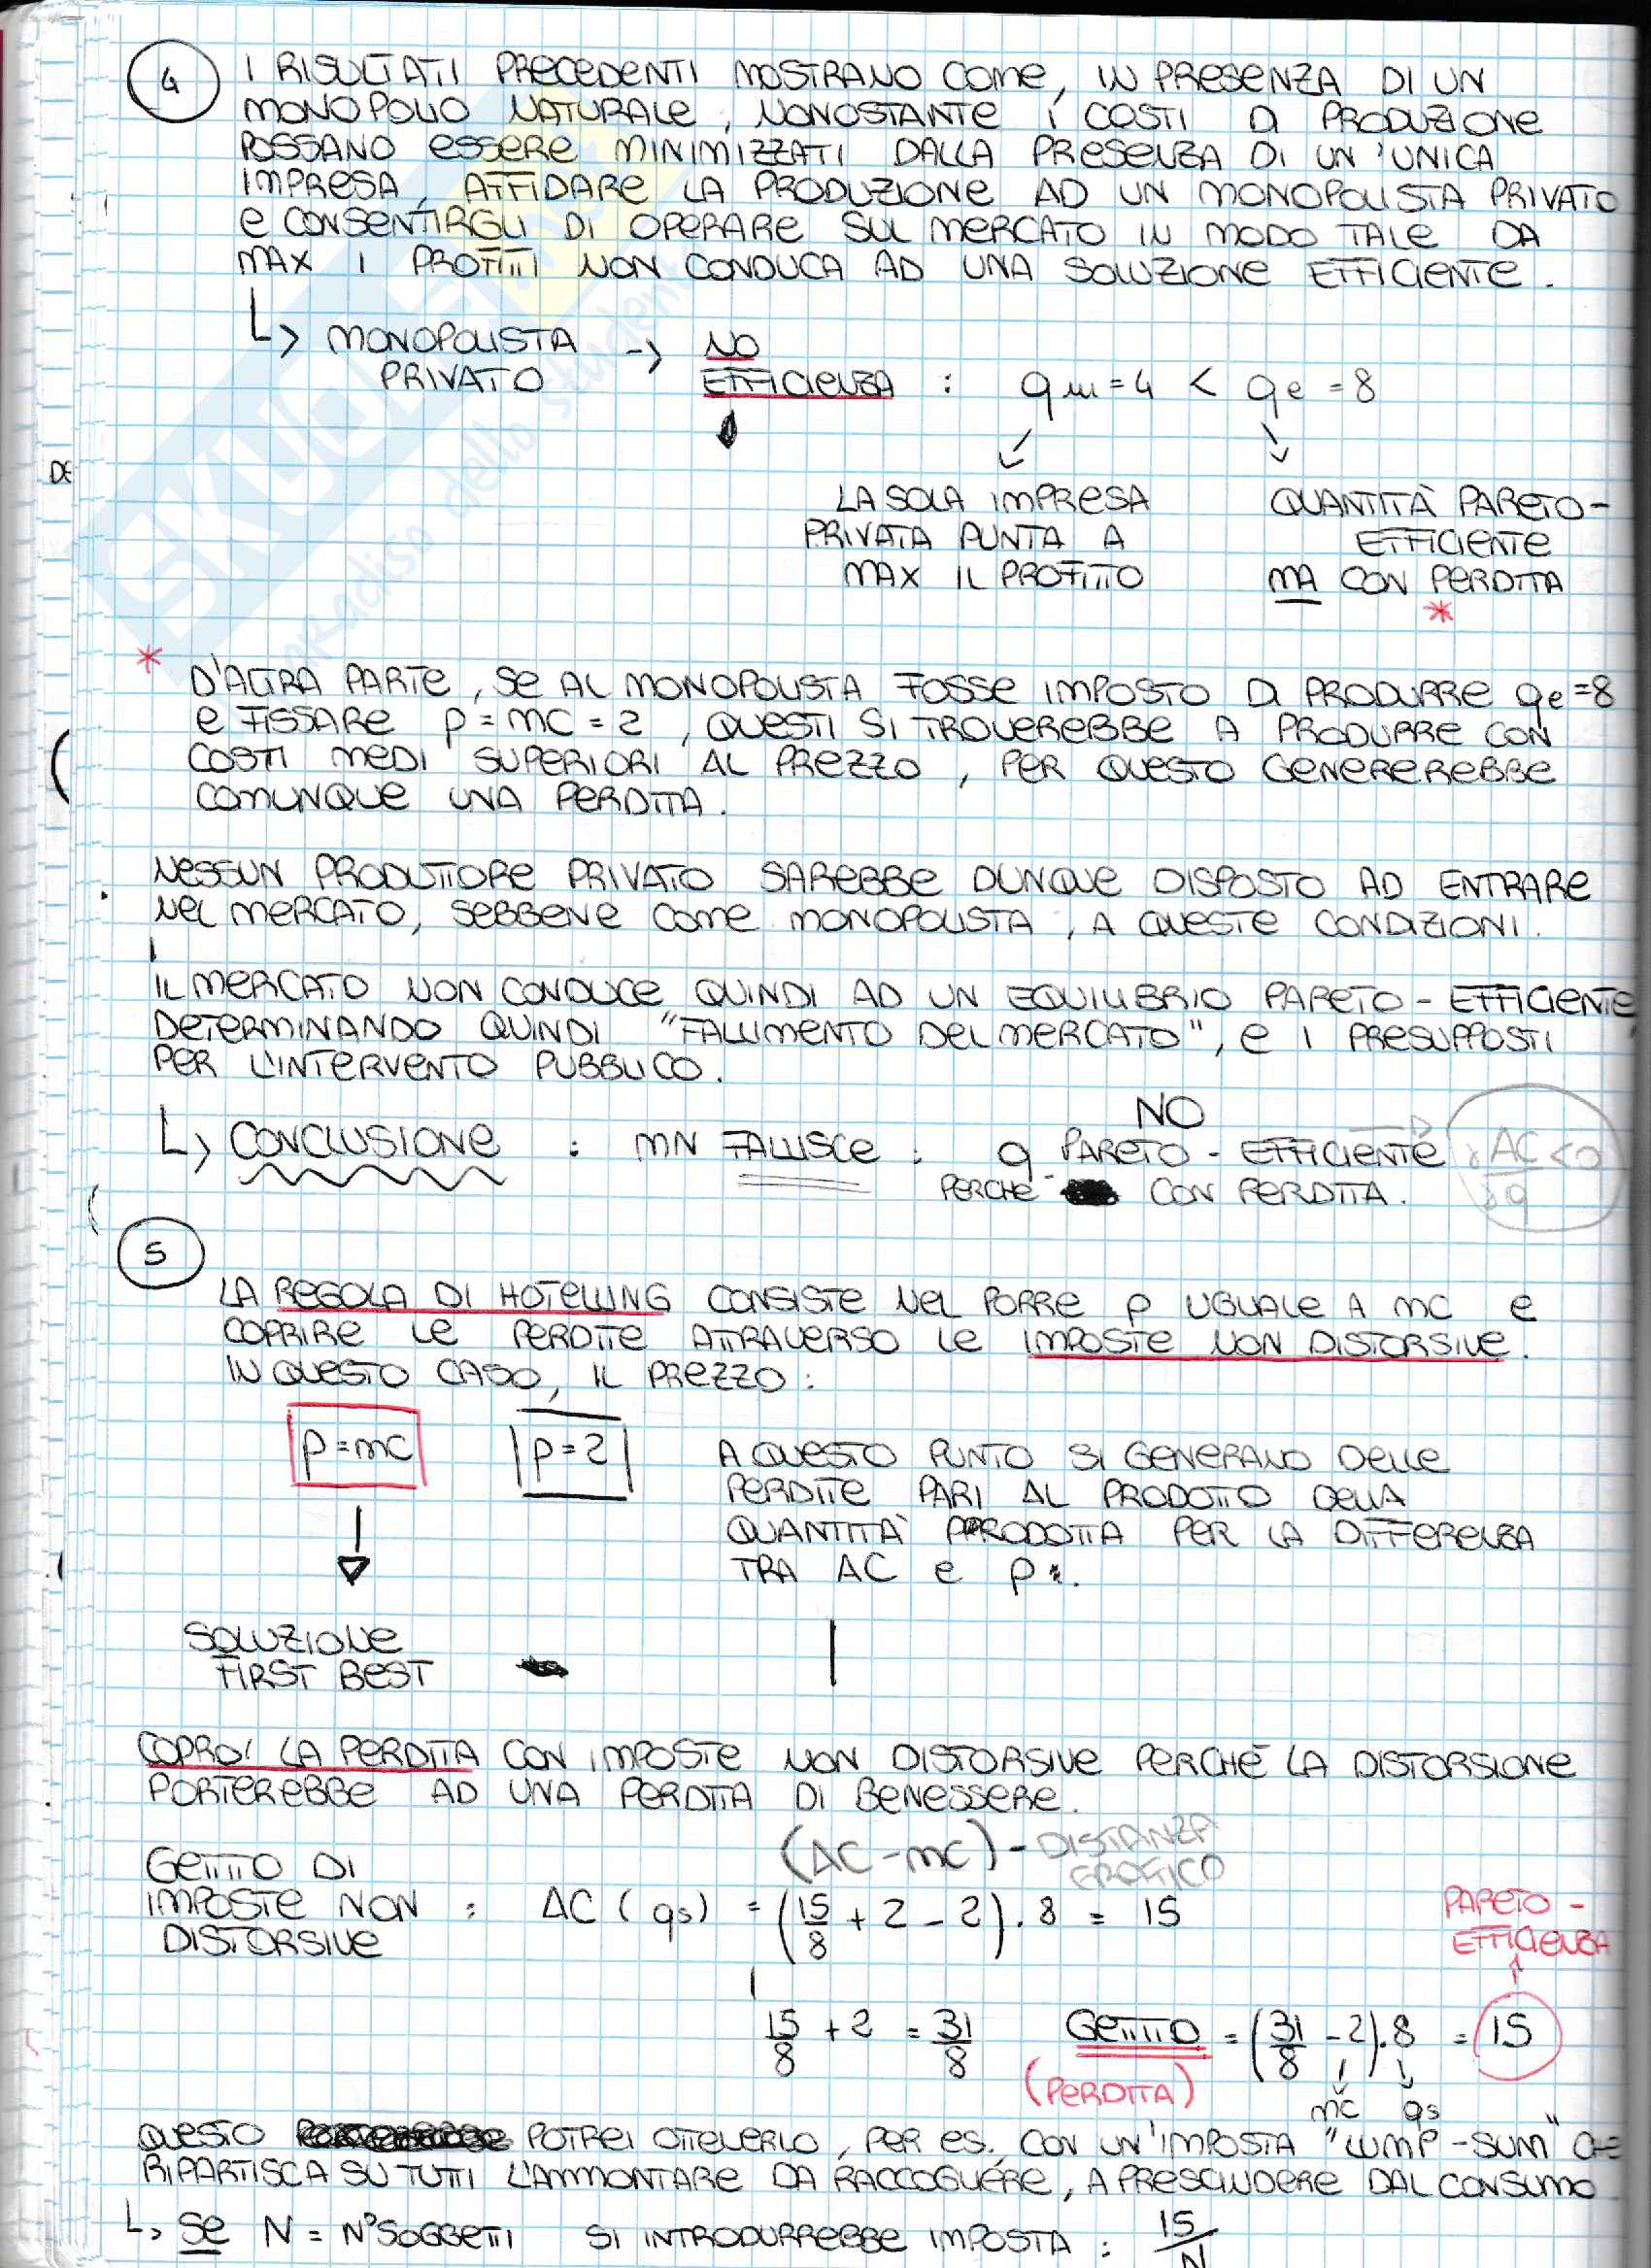 4
I RISULTATI PRECEDENTI MOSTRANO COME, IN PRESENZA DI UN
MONOPOLIO NATURALE, NONOSTANTE I COSTI DI PRODUZIONE
POSSANO ESSERE MINIMIZZATI DALLA PRESENZA DI UN'UNICA
IMPRESA, AFFIDARE LA PRODUZIONE AD UN MONOPOLISTA PRIVATO
E CONSENTIRGLI DI OPERARE SUL MERCATO IN MODO TALE DA
MAX I PROFITTI NON CONDUCA AD UNA SOLUZIONE EFFICIENTE.
↳ MONOPOLISTA PRIVATO → NO EFFICIENZA : qm = 4 < qe = 8
DE
LA SOLA IMPRESA
PRIVATA PUNTA A
MAX IL PROFITTO
QUANTITÀ PARETO-
EFFICIENTE
MA CON PERDITA
*
* D'ALTRA PARTE, SE AL MONOPOLISTA FOSSE IMPOSTO DI PRODURRE qe=8
E FISSARE p = mc = 2, QUESTI SI TROVEREBBE A PRODURRE CON
COSTI MEDI SUPERIORI AL PREZZO, PER QUESTO GENEREREBBE
COMUNQUE UNA PERDITA.
NESSUN PRODUTTORE PRIVATO SAREBBE DUNQUE DISPOSTO AD ENTRARE
NEL MERCATO, SEBBENE COME MONOPOLISTA, A QUESTE CONDIZIONI.
IL MERCATO NON CONDUCE QUINDI AD UN EQUILIBRIO PARETO-EFFICIENTE,
DETERMINANDO QUINDI "FALLIMENTO DEL MERCATO", E I PRESUPPOSTI
PER L'INTERVENTO PUBBLICO.
NO
↳ CONCLUSIONE : MN FALLISCE : q PARETO-EFFICIENTE → ∂AC/∂q < 0
PERCHÈ CON PERDITA.
5
LA REGOLA DI HOTELLING CONSISTE NEL PORRE p UGUALE A MC E
COPRIRE LE PERDITE ATTRAVERSO LE IMPOSTE NON DISTORSIVE.
IN QUESTO CASO, IL PREZZO:
p = mc
p = 2
A QUESTO PUNTO SI GENERANO DELLE
PERDITE PARI AL PRODOTTO DELLA
QUANTITÀ PRODOTTA PER LA DIFFERENZA
TRA AC E p.
SOLUZIONE
FIRST BEST
COPRO! LA PERDITA CON IMPOSTE NON DISTORSIVE PERCHÈ LA DISTORSIONE
PORTEREBBE AD UNA PERDITA DI BENESSERE.
(AC - mC) - DISTANZA
GRAFICO
GETTITO DI
IMPOSTE NON
DISTORSIVE
: AC (qs) = (15/8 + 2 - 2) · 8 = 15
PARETO-
EFFICIENZA
15/8 + 2 = 31/8
GETTITO = (31/8 - 2) · 8 = 15
(PERDITA)
mc qs
QUESTO POTREI OTTENERLO, PER ES. CON UN'IMPOSTA "LUMP-SUM" CHE
RIPARTISCA SU TUTTI L'AMMONTARE DA RACCOGLIERE, A PRESCINDERE DAL CONSUMO
↳ SE N = N° SOGGETTI SI INTRODURREBBE IMPOSTA : 15/N